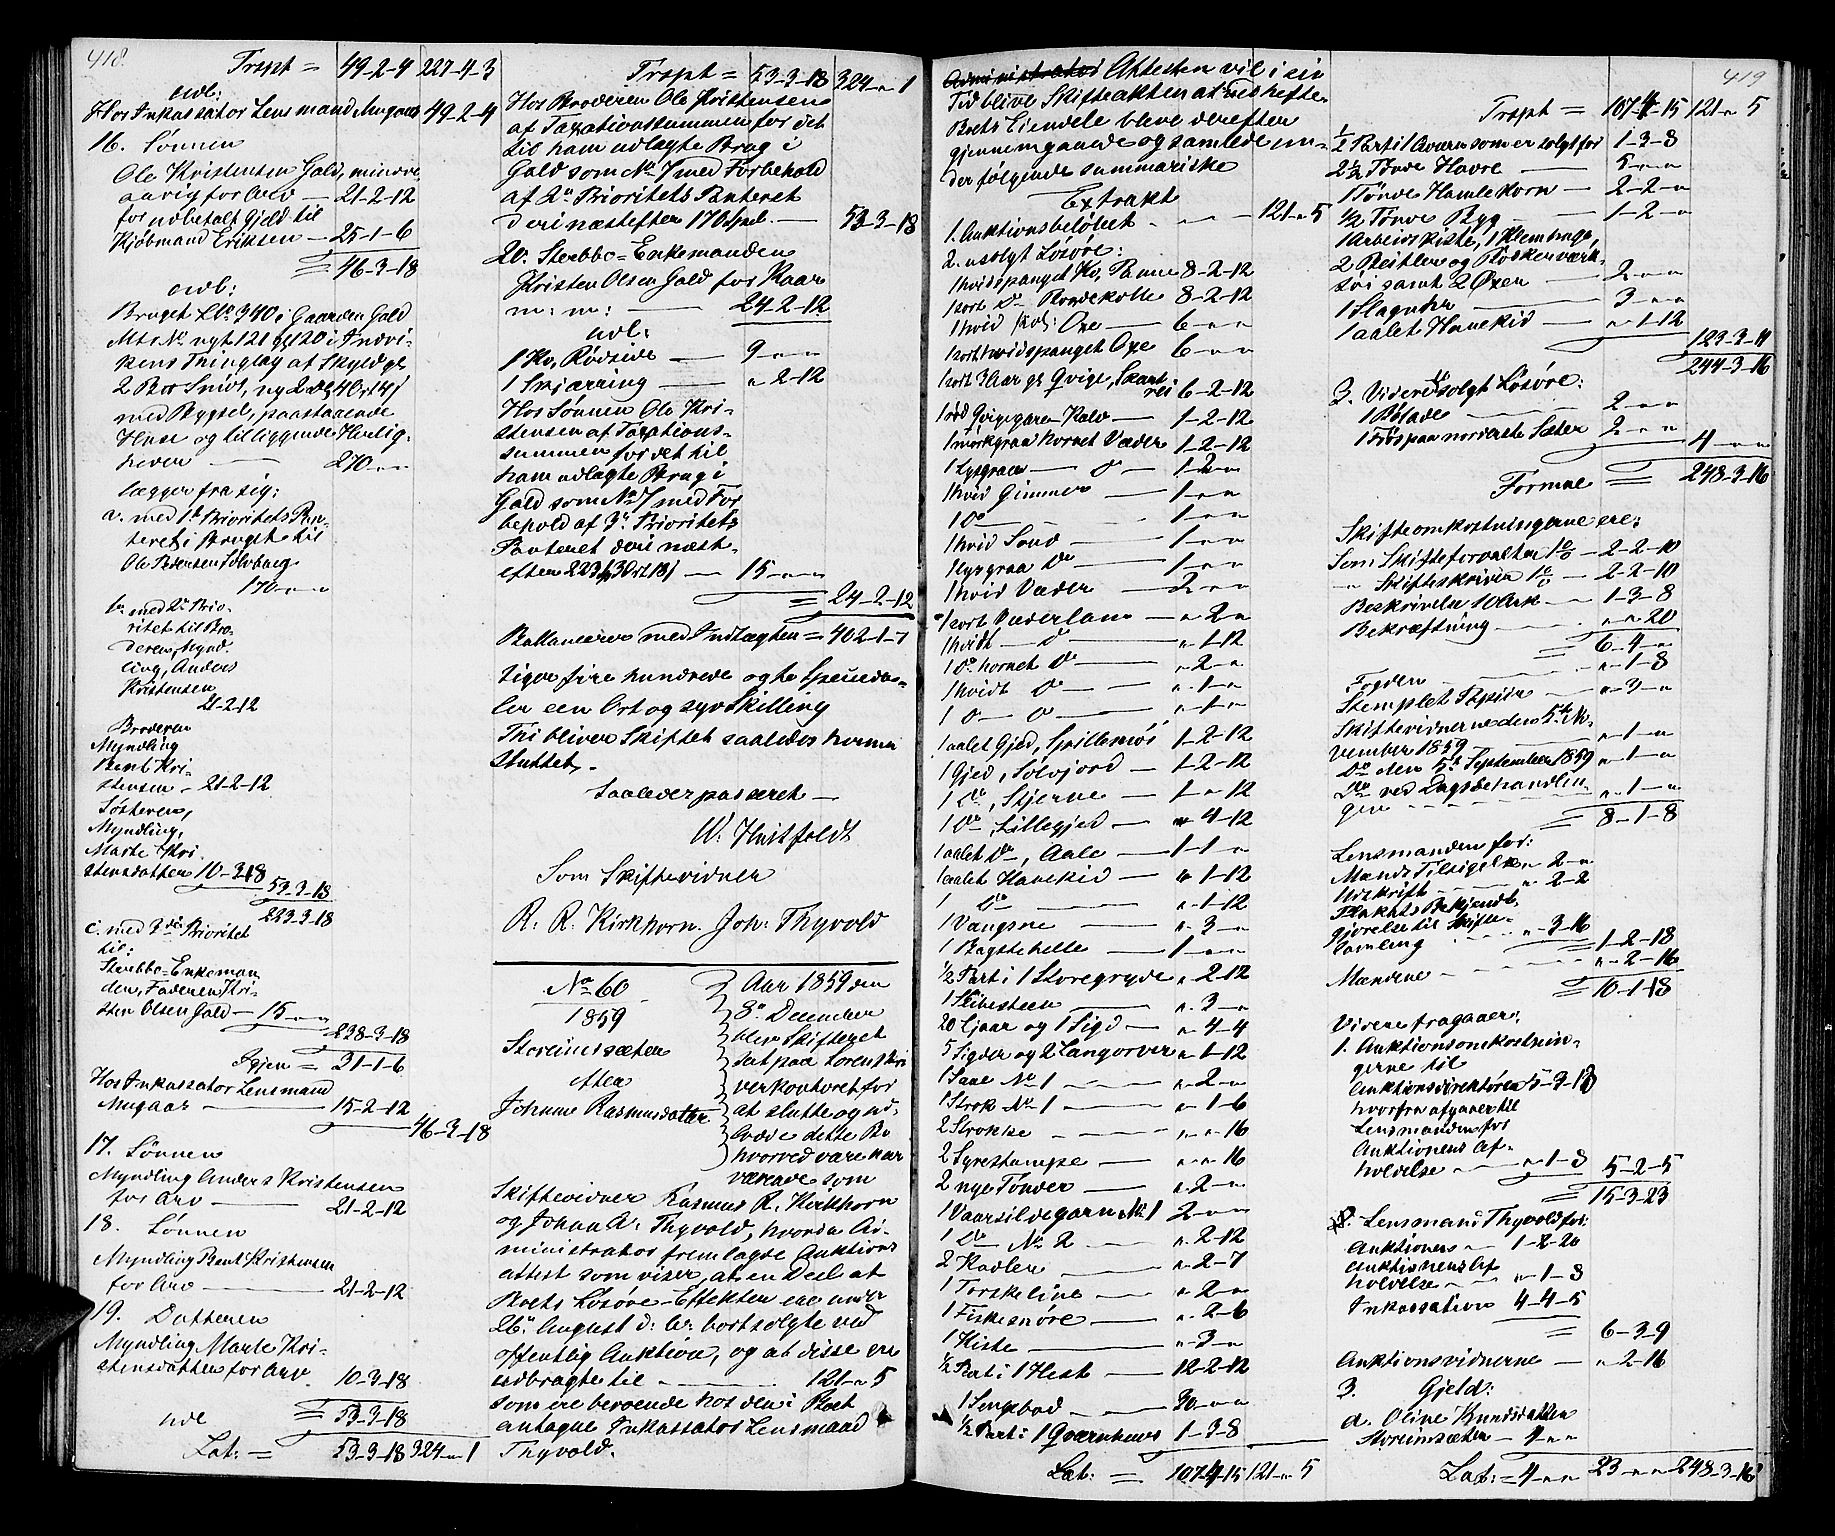 418.
Trspt = 49-2-4 227-4-3
udl:
Hos Inkassator Lensmand Mugaas 49-2-4
16. Sønnen
Ole Kristensen Gald, mindre
aarig for Arv — 21-2-12
for udbetalt Gjeld til
Kjøbmand Eriksen — 25-1-6
= 46-3-18
udl:
Bruget LNo 340 i Gaarden Gald
Mts No nyt 121 gl 120 i Indvi-
kens Thinglag af Skyld gl
med Bygsel, paastaaende
Huse og tilliggende Herlig-
heder — 270 " "
lægger fra sig:
a. med 1te Prioritets Pan-
teret i Bruget til
Ole Pedersen Solvberg
170 " "
b. med 2n Prio-
ritet til Bro-
deren, Mynd-
ling, Anders
Kristensen
21-2-12
Broderen
Myndling
Bent Kri-
stensen — 21-2-12
Søsteren,
Myndling,
Marte Kri-
stensdatter 10-3-18
53-3-18
223-3-18
c. med 3die Prioritet
til:
Sterbbo-Enkeman
den, Faderen Kri-
sten Olsen Gald — 15 " "
238-3-18
Igjen = 31-1-6
Hos Inkassator Lensmand
Mugaas — 15-2-12
46-3-18
17. Sønnen
Myndling Anders Kristensen
for Arv — 21-2-12
18. Sønnen
Myndling Bent Kristensen
for Arv — 21-2-12
19. Datteren
Myndling Marte Kri-
stensdatter for Arv 10-3-18
= 53-3-18
Lat: = 53-3-18 324 " 1
Trspt = 53-3-18 324 " 1
Hos Broderen Ole Kristensen
af Taxationssummen for det
til ham udlagte Brug i
Gald som No 7 med Forbehold
af 2n Prioritets Panteret
deri næstefter 170 Spd. — 53-3-18
20. Sterbbo-Enkemanden
Kristen Olsen Gald for Kaar
m: m: — 24-2-12
udl:
1 Ko, Rødside — 9 " "
1 Skjæring — " 2-12
Hos Sønnen Ole Kri-
stensen af Taxations-
summen for det til
ham udlagte Brug i
Gald som No 7 med For
behold af 3n Prioritets
Panteret deri næst-
efter 223 3 Ort 18 — 15 " "
= 24-2-12
Ballancerer med Indtægten = 402-1-7
siger fire hundrede og to Specieda-
ler een Ort og syv Skilling
Thi bliver Skiftet saaledes hermed
sluttet.
Saaledes passeret —
W. Huitfeldt
Som Skiftevidner
R. R. Kirkhorn. Joh: Thyvold
No 60
1859
Storeimssæteren
efter
Johanne Rasmusdatter
Aar 1859 den
3n December
blev Skifteret
sat paa Sorenskri
verkontoret for
at slutte og ud-
lodde dette Bo
hvorved vare nær
værende som
Skiftevidner Rasmus R. Kirkhorn
og Johan A. Thyvold, hvorda Ad-
ministrator fremlagde Auktions
attest som viser, at en Deel af
Boets Løsøre-Effekter ere under
26n August d: A: bortsolgte ved
offentlig Auktion, og at disse ere
udbragte til — 121 " 5
som ere beroende hos den i Boet
antagne Inkassator Lensmand
Thyvold.
419
Administrator Attesten vil i sin
Tid blive Skifteakten at vedhefte.
Boets Eiendele bleve derefter
gjennemgaaede og samlede un-
der følgende summariske
Extrakt
1. Auktionsbeløbet — 121 " 5
2. usolgt Løsøre:
1 hvidspanget Ko, Panne 8-2-12
1 sort Do Brodekolle 8-2-12
1 hvid kol: Oxe — 6 " "
1 sort hvidspanget Oxe 6 " "
1 sort 3 Aar gl Qvige, Skart
rei 6-2-12
1 rød Qvigegaren Kalv — 1-2-12
1 mørkgraa hornet Væder 1-2-12
1 Lysgraa — Do — 1-2 "
1 hvid Gimmer — 1 " "
1 Do — 1 " "
1 hvid Soud — 1 " "
1 lysgraa Do — 1 " "
1 hvid Væder — 2 " "
1 sort Væderlam — " 2 "
1 hvidt — Do — " 1-12
1 Do hornet Do — " 2 "
1 hvidt Do — " 1 "
1 Do — Do — " 1 "
1 aalet Gjed, Spillemoi 1-2-12
1 Gjed, Solvjord — 1-2-12
1 Do, Stjerne — 1 " 12
1 Do, Lillegjed — " 4-12
1 aalet Do, Aale — 1-1 "
1 aalet Havekid — " 1-12
1 Do — " 1-12
1 Vangsne — " 3 "
1 Bagstehelle — 1 " "
1/2 Part i 1 Storegryde " 2-12
1 Slibesteen — " 3 "
20 Ljaar og 1 Sigd — " 4-4
5 Sigder og 2 Langorver " 1-12
1 Saae No 1 — " 2 "
1 Strok No 1 — " 1-6
2 Strokke — " " 16
2 Syrestampe — " " 16
2 nye Tønder — " 2 "
1 Vaarsildegarn No 1 2 " "
1 Do No 2 — " 2-12
2 Kadler — " 2-7
1 Torskeline — " 2 "
1 Fiskesnøre — " 2-6
1 Kiste — " 3 "
1/2 Part i 1 Hest — 12-2-12
1 Sengebod — 30 " "
1/2 Part i 1 Qværnhuus 1-3-8
Lat: = 107-4-15 121 " 5
Trspt = 107-4-15 121 " 5
1/2 Part i 1 Avarn som er solgt for 1-3-8
2 1/2 Tønde Havre — 5 " "
1 Tønde Hamlekorn — 2-2 "
1/2 Tønde Byg — 1-2 "
1 Arbeidskiste, 1 Klembage,
2 Beitler og Bøskerværk-
tøi samt 2 Øxer — 2 " "
1 Slaguhr — 3 " "
1 aalet Havekid — " 1-12
123-3-11
244-3-16
3. Videre usolgt Løsøre:
1 Bølade — 2 " "
1 Fjøs paa nordenste Sæter 2 " "
4 " "
Formue = 248-3-16
Skifteomkostningerne ere:
Som Skifteforvalter 1% — 2-2-10
" Skifteskriver 1% — 2-2-10
Beskrivelse 10 Ark — 1-3-8
Bekræftning — " " 20
= 6-4 "
Fogden — " 1-8
Stemplet Papir — " 3 "
Skiftevidnerne den 5te No-
vember 1859 — " 1 "
Do den 5te September 1859 " 1 "
Do ved Dagsbehandlin-
gen — " 1 "
= 8-1-8
Lensmanden for:
Mands Tilsigelse " 2 "
Udskrift — " 2-2
Plakats Bekjendt-
gjørelse til Skifte-
samling — " 3-16
= 1-2-18
Mændene — " 2-16
= 10-1-18
Videre fragaaer:
1. Auktionsomkostnin-
gerne til
Auktionsdirektøren 5-3-13
hvorfra afgaaer til
Lensmanden for
Auktionens Af-
holdelse — " 1-8
5-2-5
= 15-3-23
2. Lensmand Thyvold for:
Auktionens — 1-2-20
Auktionens Af
holdelse — " 1-8
Inkassation 4-4-5
= 6-3-9
Auktionsvidnerne — " 2-16
3. Gjeld:
a. Oline Knudsdatter
Storeimsæter — 4 " "
Lat: = 4 " " 23 " " 248-3-16